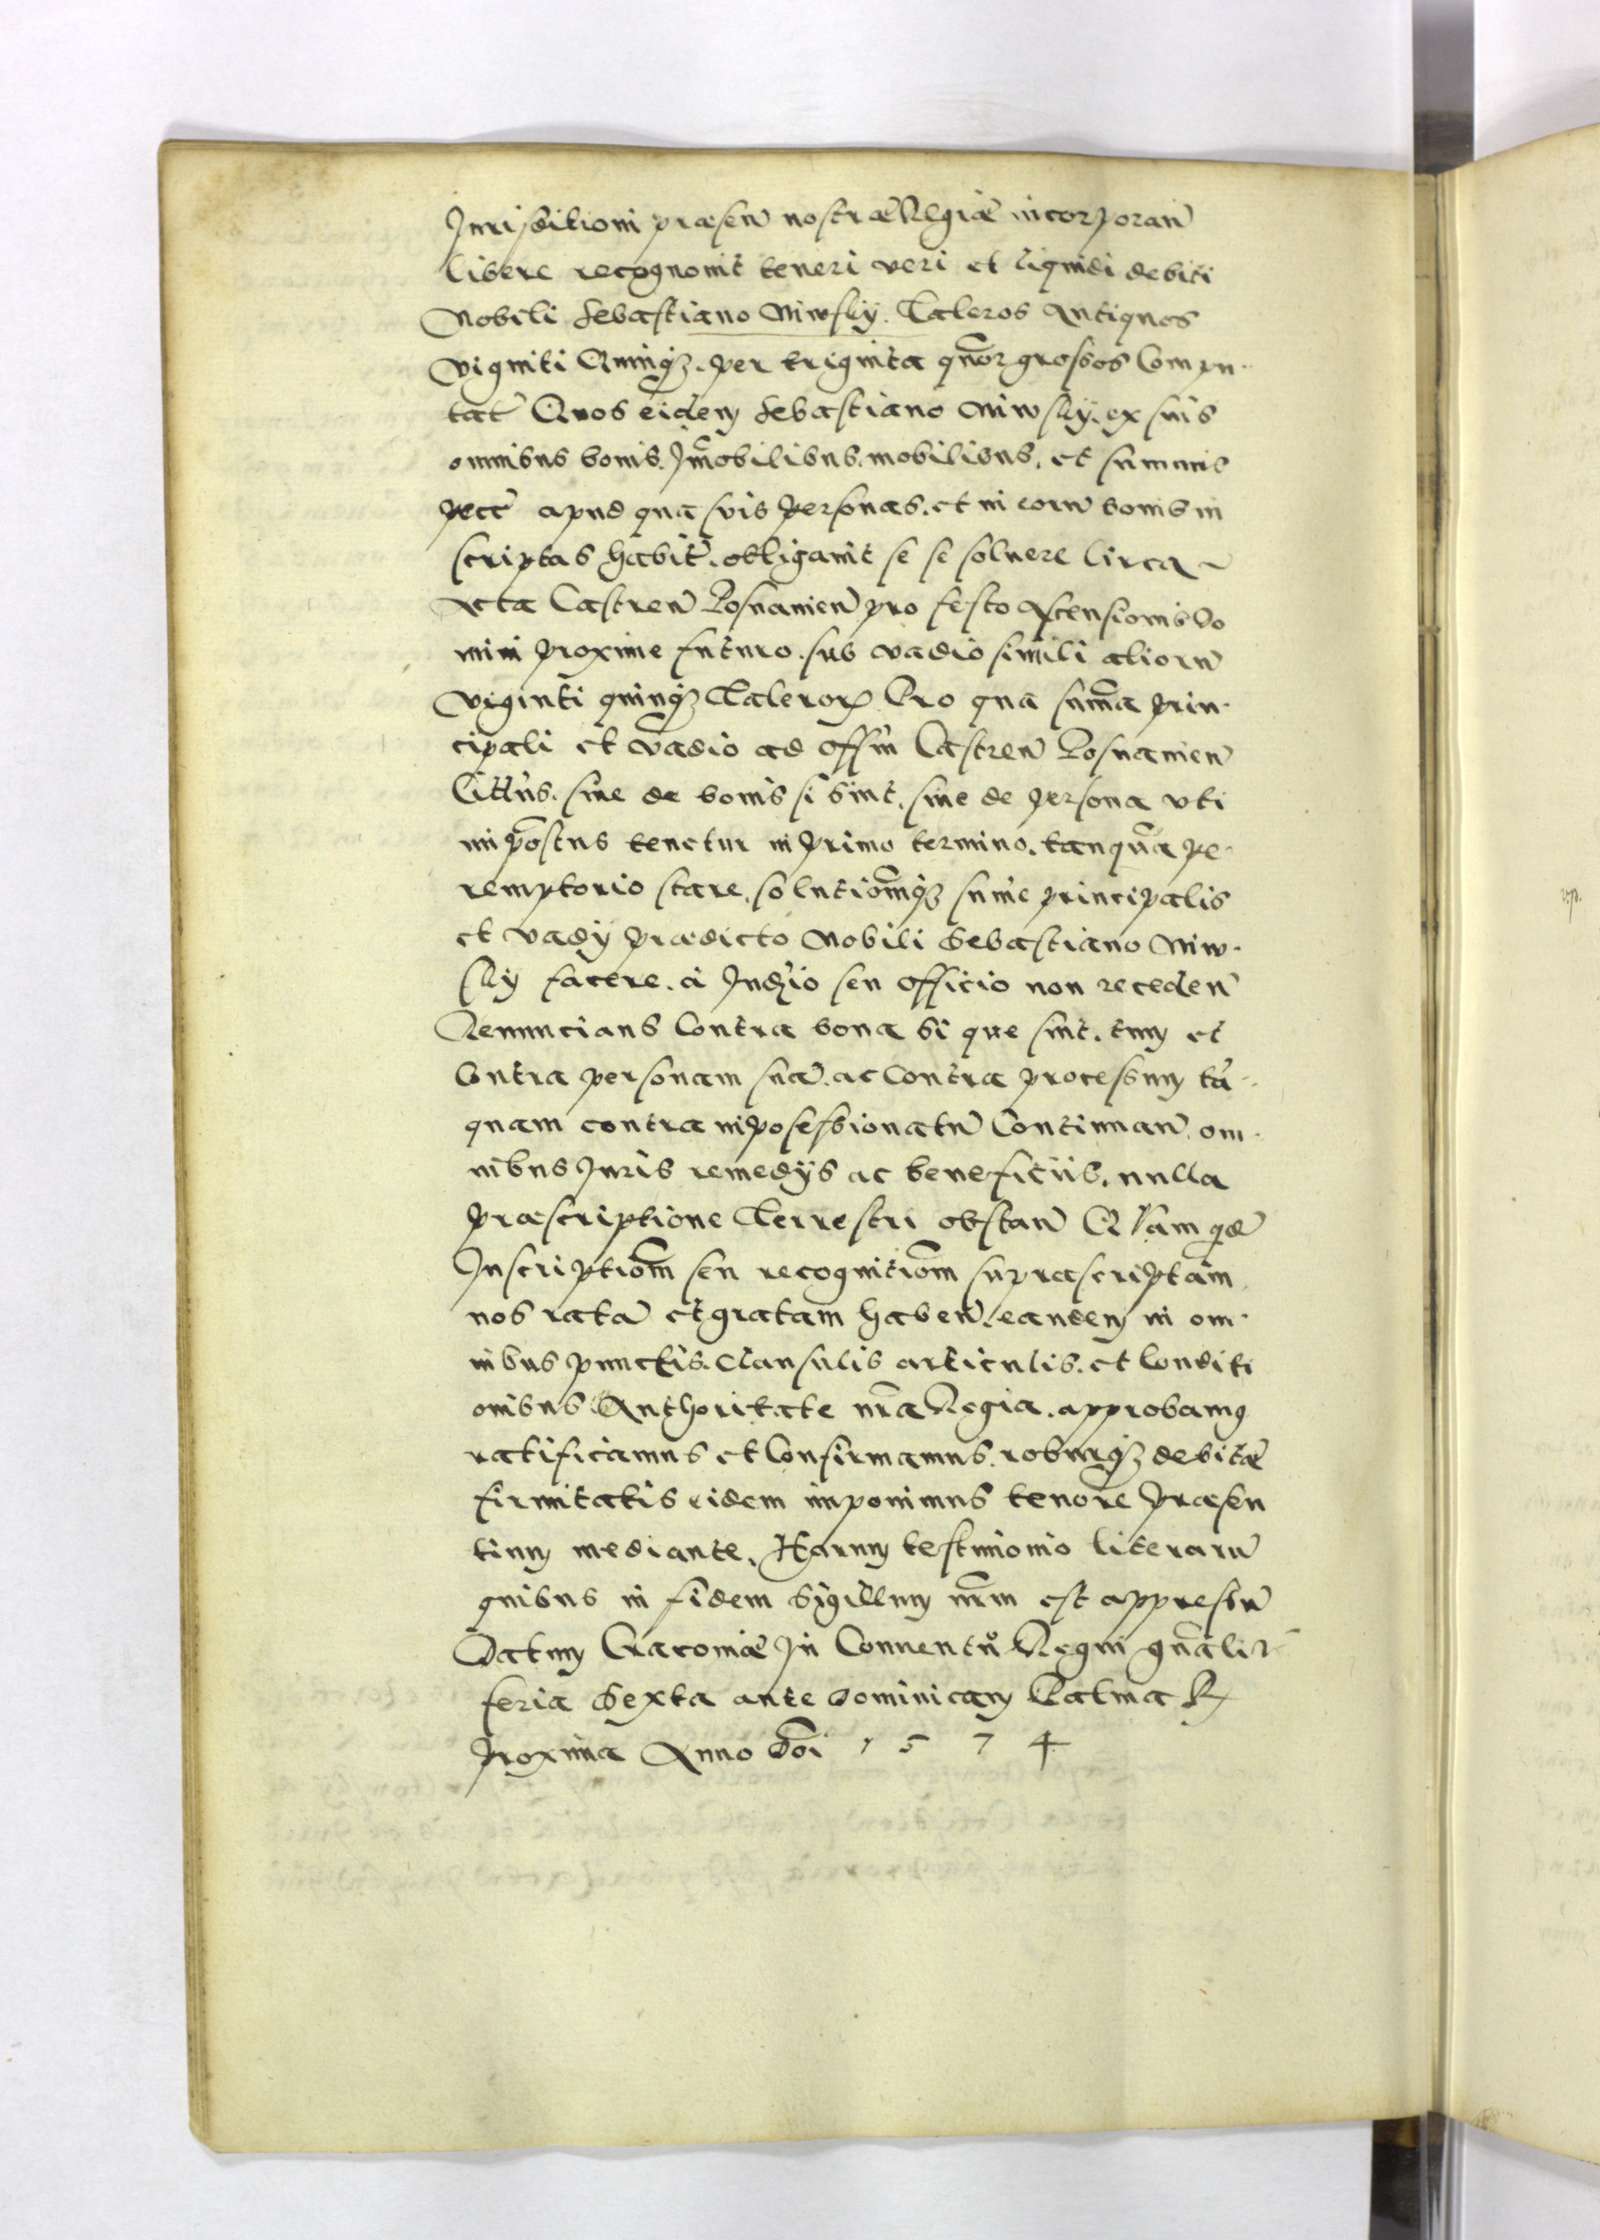 Jurisditioni præsen̄ nostræ Regiæ incorporan̄
libere recognouit teneri veri et liquidi debiti
Nobili Sebastiano Niwsky. Taleros Antiquos
viginti Quinq₃. per triginta qu̅or grossos Compu-
tat̄ Quos eidem Sebastiano Niwsky. ex suis
omnibus bonis. Im̄obilibus. mobilibus. et summis
pecc̄ apud quasuis personas. et in eorū bonis in
scriptas habit̄. obligauit se se soluere Circa
Acta Castren̄ Posnanien̄ pro festo Ascensionis Do
mini proxime futuro. sub vadio simili aliorū
viginti quinq₃ Taleror₎ Pro qua sum̄a prin-
cipali et vadio ad offm̄ Castren̄ Posnanien̄
Cittus. siue de bonis si sint. siue de persona vti
impōstus tenetur in primo termino. tanquā pe-
remptorio stare. solutiōmq₃ sum̄e principalis
et vadÿ prædicto Nobili Sebastiano Niw-
sky facere. à Jud̄io seu officio non receden̄
Renuncians Contra bona si que sint. tum et
Contra personam suā. ac Contra processum tā-
quam contra imposessionatū Continuan̄. om-
nibus Juris remedÿs ac beneficiis. nulla
præscriptione Terrestri obstan̄ Quam qd̄
Inscriptiōm seu recognitiōm suprascriptam
nos ratā et gratam haben̄. eandem in om-
nibus punctis. Clausulis articulis. et Conditi
onibus Authoritate nr̄a Regia. approbamꝯ
ratificamus et Confirmamus. roburq₃ debitæ
firmitatis eidem imponimus tenore præsen
tium mediante. Harum testimonio literarū
quibus in fidem Sigillum nr̄m est appressū
Datum Cracoviæ In Conuentu Regni gn̄ali
feria Sexta ante Dominicam Palmaꝝ
proxima Anno Dōi 1574